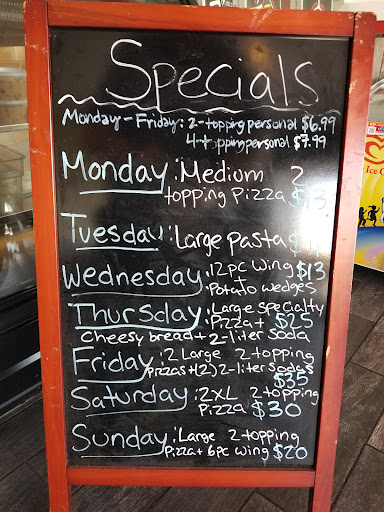 Specials
Monday - Friday: 2-topping personal $6.99
4-topping personal $7.99
Monday: Medium 2
topping Pizza
Tuesday: Large pasta
Wednesday: 12pc wing $13
Potato wedges
Thursday: Large specialty
Pizza + $25
Cheesy bread + 2-liter soda
Friday: 2 Large 2 topping
pizzas + (2) 2-liter sodas
$35
Saturday: 2XL 2 topping
Pizza $30
Sunday: Large 2-topping
Pizza + 6pc wing $20
Ice